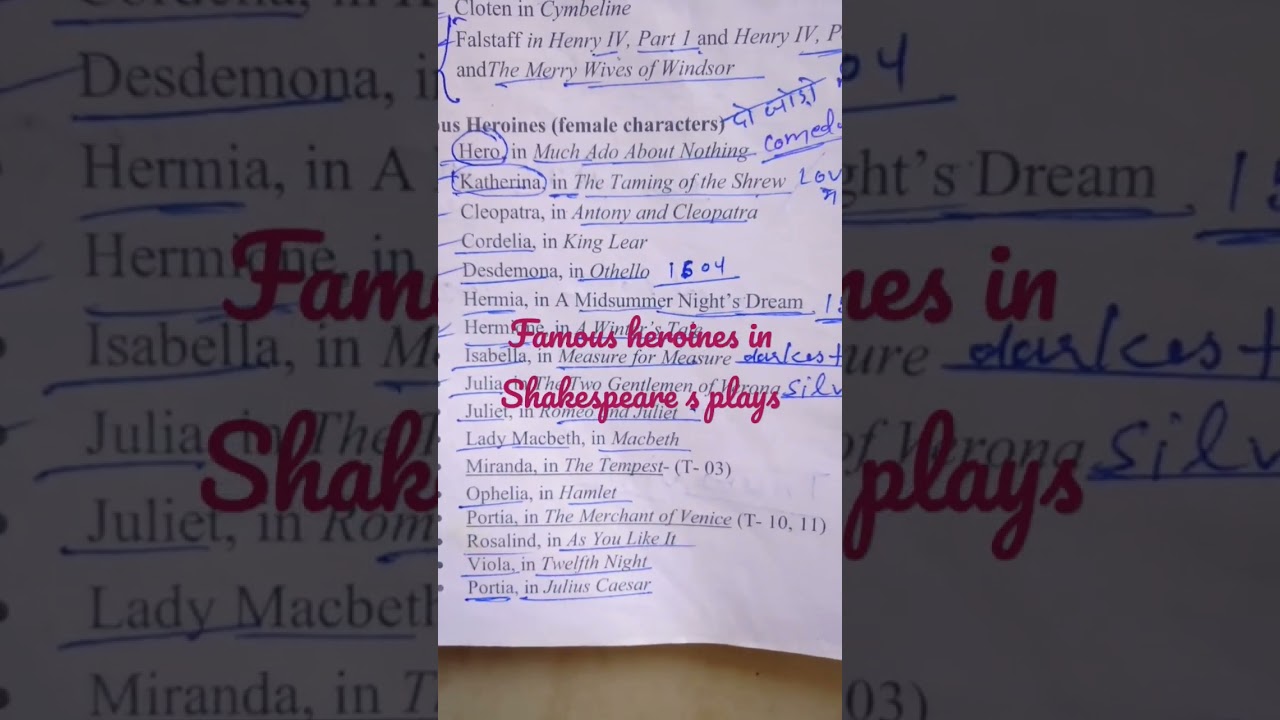 Cloten in Cymbeline
Falstaff in Henry IV, Part 1 and Henry IV, P
and The Merry Wives of Windsor
ous Heroines (female characters) दो जोड़ो
Hero, in Much Ado About Nothing comed
Katherina, in The Taming of the Shrew Lov
Cleopatra, in Antony and Cleopatra
Cordelia, in King Lear
Desdemona, in Othello 1604
Hermia, in A Midsummer Night's Dream, 15
Hermione, in A Winter's Tale
Isabella, in Measure for Measure darkest
Julia, in The Two Gentlemen of Verona silv
Juliet, in Romeo and Juliet
Lady Macbeth, in Macbeth
Miranda, in The Tempest- (T- 03)
Ophelia, in Hamlet
Portia, in The Merchant of Venice (T- 10, 11)
Rosalind, in As You Like It
Viola, in Twelfth Night
Portia, in Julius Caesar
Famous heroines in
Shakespeare s plays